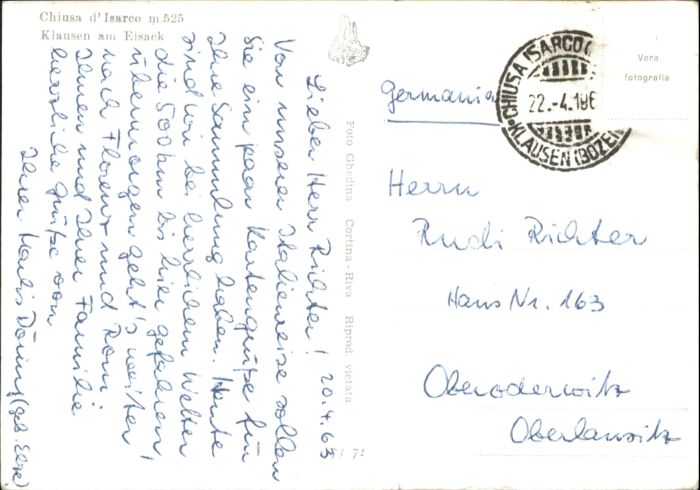 Chiusa d'Isarco m.525
Klausen am Eisack
Lieber Herr Richter! 20.4.65
Von unserer Italienreise sollen
Sie ein paar Kartengrüße für
Ihre Sammlung haben. Heute
sind wir bei herrlichem Wetter
die 500 km bis hier gefahren,
übermorgen geht's weiter
nach Florenz und Rom.
Ihnen und Ihrer Familie
herzliche Grüße von
Ihrer
(geb. Else)
Foto Ghedina Cortina-Riva Riprod. vietata
71
Vera
fotografia
CHIUSA ISARCO
22.-4.196
KLAUSEN (BOZEN)
Germania
Herrn
Rudi Richter
Haus Nr. 163
Oberoderwitz
Oberlausitz